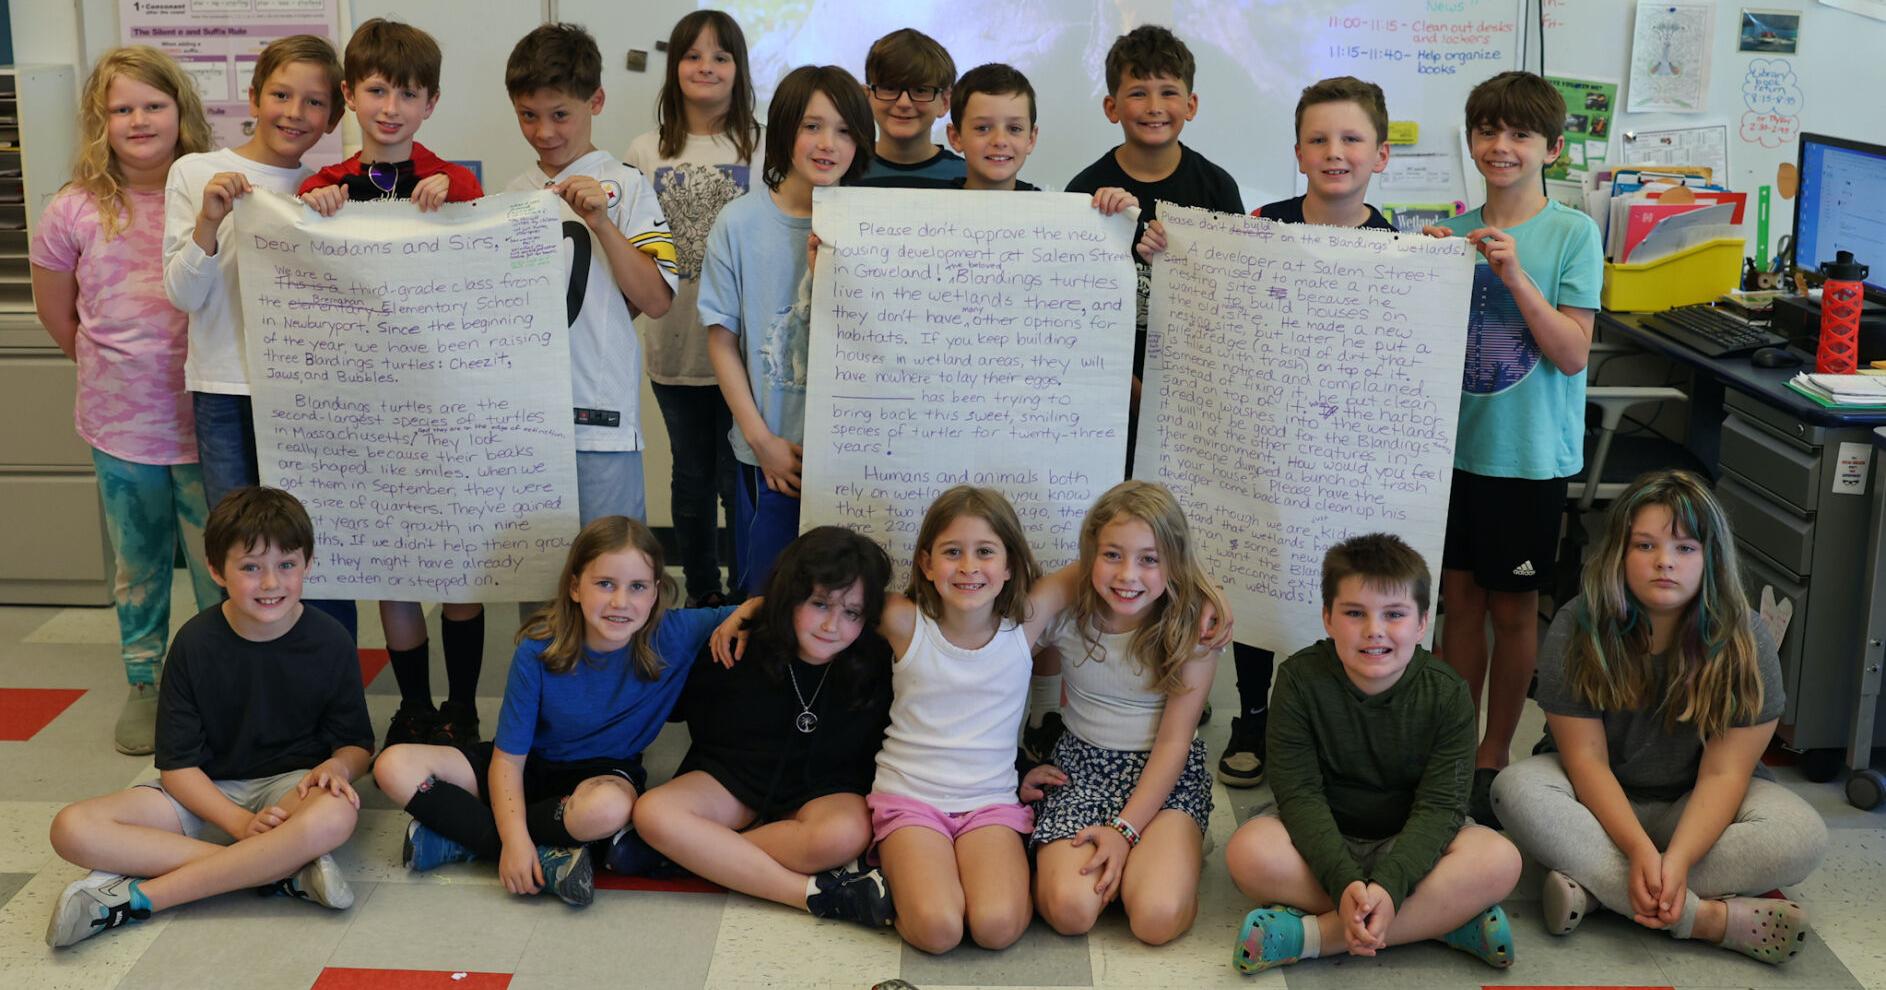 Dear Madams and Sirs,
We are a
This is a third-grade class from
Bresnahan
the elementary Elementary School
in Newburyport. Since the beginning
of the year, we have been raising
three Blandings turtles: Cheezit,
Jaws, and Bubbles.
Blandings turtles are the
second-largest species of turtles
and they are on the edge of extinction.
in Massachusetts! They look
really cute because their beaks
are shaped like smiles. When we
got them in September, they were
size of quarters. They've gained
years of growth in nine
If we didn't help them grow
they might have already
eaten or stepped on.
Please don't approve the new
housing development at Salem Street
the beloved
in Groveland! Blandings turtles
live in the wetlands there, and
many
they don't have other options for
habitats. If you keep building
houses in wetland areas, they will
have nowhere to lay their eggs.
has been trying to
bring back this sweet, smiling
species of turtle for twenty-three
years!
Humans and animals both
rely on you know
that two ago,
were 220
build
Please don't develop on the Blandings' wetlands!
A developer at Salem Street
said promised to make a new
nesting site because he
wanted to build houses on
the old site. He made a new
nesting site, but later he put a
pile dredge (a kind of dirt that
is filled with trash) on top of it.
Someone noticed and complained.
Instead of fixing it, he put clean
sand on top of it. the harbor
dredge washes into the wetlands,
it will not be good for the Blandings
and all of the other creatures in
their environment. How would you feel
if someone dumped a bunch of trash
in your house? Please have the
developer come back and clean up his
mess!
Even though we are just kids
that wetlands
than some new
want the
to become
on wetlands!
1-Consonant
The Silent e and Suffix Rule
When adding a
Rule
News"
11:00-11:15- Clean out desks
and lockers
11:15-11:40- Help organize
books
Library
book
return
8:15-8:35
Wetland
adidas